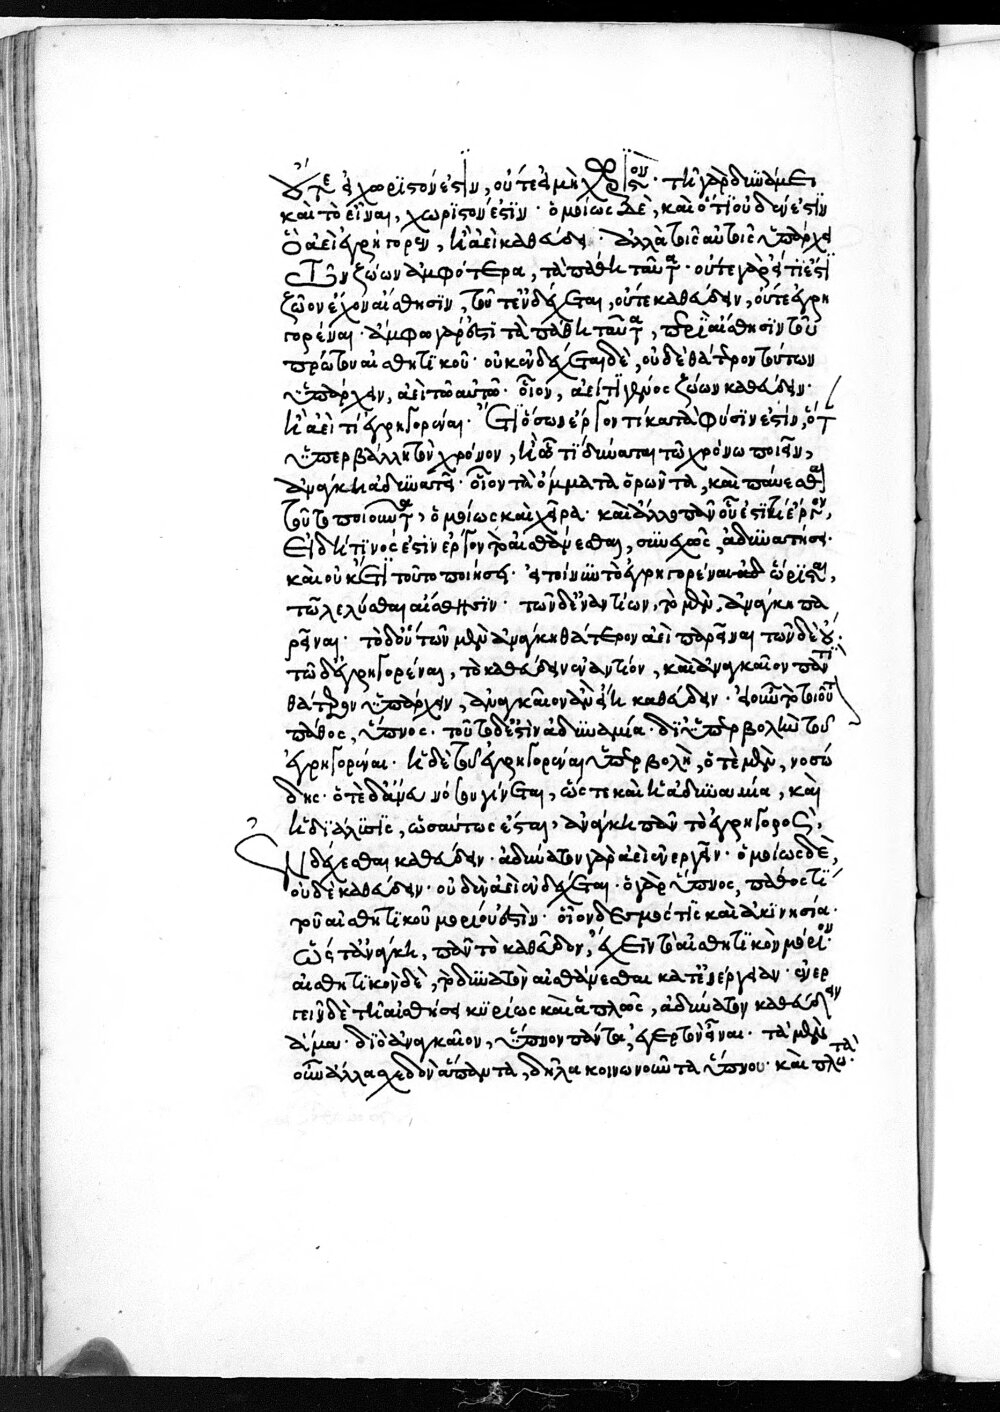 οὔτε χωριστόν ἐστιν, οὔτε μὴ χωριστόν· τῆ γὰρ δυνάμει
καὶ τὸ εἶναι, χωριστόν ἐστϊν· ὁμοίως δὲ, καὶ ὅτϊ οὐδέν ἐστϊν
ὃ ἀεὶ ἐγρήγορεν, ἢ ἀεὶ καθεύδει· ἀλλὰ τοῖς αὐτοῖς ὑπάρχει
τῶν ζώων ἀμφότερα, τὰ πάθη ταῦτα· οὔτε γὰρ ἔτϊ ἐστϊ
ζῶον ἔχον αἴσθησϊν, τοῦτ' ἐνδέχεται, οὔτε καθεύδειν, οὔτε ἐγρη
γορέναι· ἄμφω γάρ ἐστϊ τὰ πάθη ταῦτα, περὶ αἴσθησϊν τοῦ
πρώτου αἰσθητϊκοῦ· οὐκ ἐνδέχεται δὲ, οὐδὲ θάτερον τούτων
ὑπάρχειν, ἀεὶ τῶ αὐτῶ· οἷον, ἀεί τϊ γένος ζώων καθεύδειν·
ἢ ἀεὶ τὶ ἐγρηγορέναι· Ἔτϊ ὅσων ἔργον τι κατὰ φύσϊν ἐστϊν, ὅτ
ὑπερβάλλη τὸν χρόνον, ἢ ᾧ τϊ δύναται τῶ χρόνω ποιεῖν,
ἀνάγκη ἀδυνατεῖν· οἷον τὰ ὄμματα ὁρῶντα, καὶ παύεσθαι
τοῦτο ποιοῦντα, ὁμοίως καὶ χεῖρα· καὶ ἄλλο πᾶν οὗ ἐστϊ τϊ ἔργον,
Εἰ δή τϊνός ἐστϊν ἔργον τὸ αἰσθάνεσθαι, συνεχῶς, ἀδυνατήσει·
καὶ οὐκ ἔτϊ τοῦτο ποιήσει· εἰ τοίνυν τὸ ἐγρηγορέναι ὥρϊσται,
τῶ λελύσθαι αἴσθησϊν· τῶν δ' ἐναντίων, τὸ μὲν, ἀνάγκη πα
ρεῖναι· τὸ δ' οὔ· τῶν μὲν ἀνάγκη θάτερον ἀεὶ παρεῖναι τῶν δὲ οὔ·
τῶ δ' ἐγρηγορέναι, τὸ καθεύδειν ἐναντίον, καὶ ἀναγκαῖον παντὶ
θάτερον ὑπάρχειν, ἀναγκαῖον ἂν εἴη καθεύδειν· εἰ οὖν τὸ τοιοῦτ
πάθος, ὕπνος· τοῦτο δ' ἐστϊν ἀδυναμία· δϊ' ὑπερβολὴν τοῦ
ἐγρηγορέναι· ἡ δὲ τοῦ ἐγρηγορέναι ὑπερβολὴ, ὁτὲ μὲν, νοσώ
δης· ὁτὲ δ' ἄνευ νόσου γίνεται, ὥστε καὶ ἡ ἀδυναμία, καὶ
ἡ δϊάλυσϊς, ὡσαύτως ἔσται, ἀνάγκη πᾶν τὸ ἐγρηγορὸς,
Ἐνδέχεσθαι καθεύδειν· ἀδύνατον γὰρ ἀεὶ ἐνεργεῖν· ὁμοίως δὲ,
οὐδὲ καθεύδειν· οὐδὲν ἀεὶ ἐνδέχεται· ὁ γὰρ ὕπνος, πάθος τϊ
τοῦ αἰσθητϊκοῦ μορίου ἐστϊν· οἷον δεσμός τϊς καὶ ἀκϊνησία·
ὥστ' ἀνάγκη, πᾶν τὸ καθεῦδον, ἔχειν τὸ αἰσθητϊκὸν μόριον·
αἰσθητϊκὸν δὲ, τὸ δυνατὸν αἰσθάνεσθαι κατ' ἐνέργειαν· ἐνερ
γεῖν δὲ τῆ αἰσθήσει κυρίως καὶ ἁπλῶς, ἀδύνατον καθεύδειν
ἅμα· διὸ ἀναγκαῖον, ὕπνον πάντα, ἐγερτὸν εἶναι· τὰ μὲν
οὖν ἄλλα σχεδὸν ἅπαντα, δῆλα κοινωνοῦντα ὕπνου· καὶ πλωτὰ·